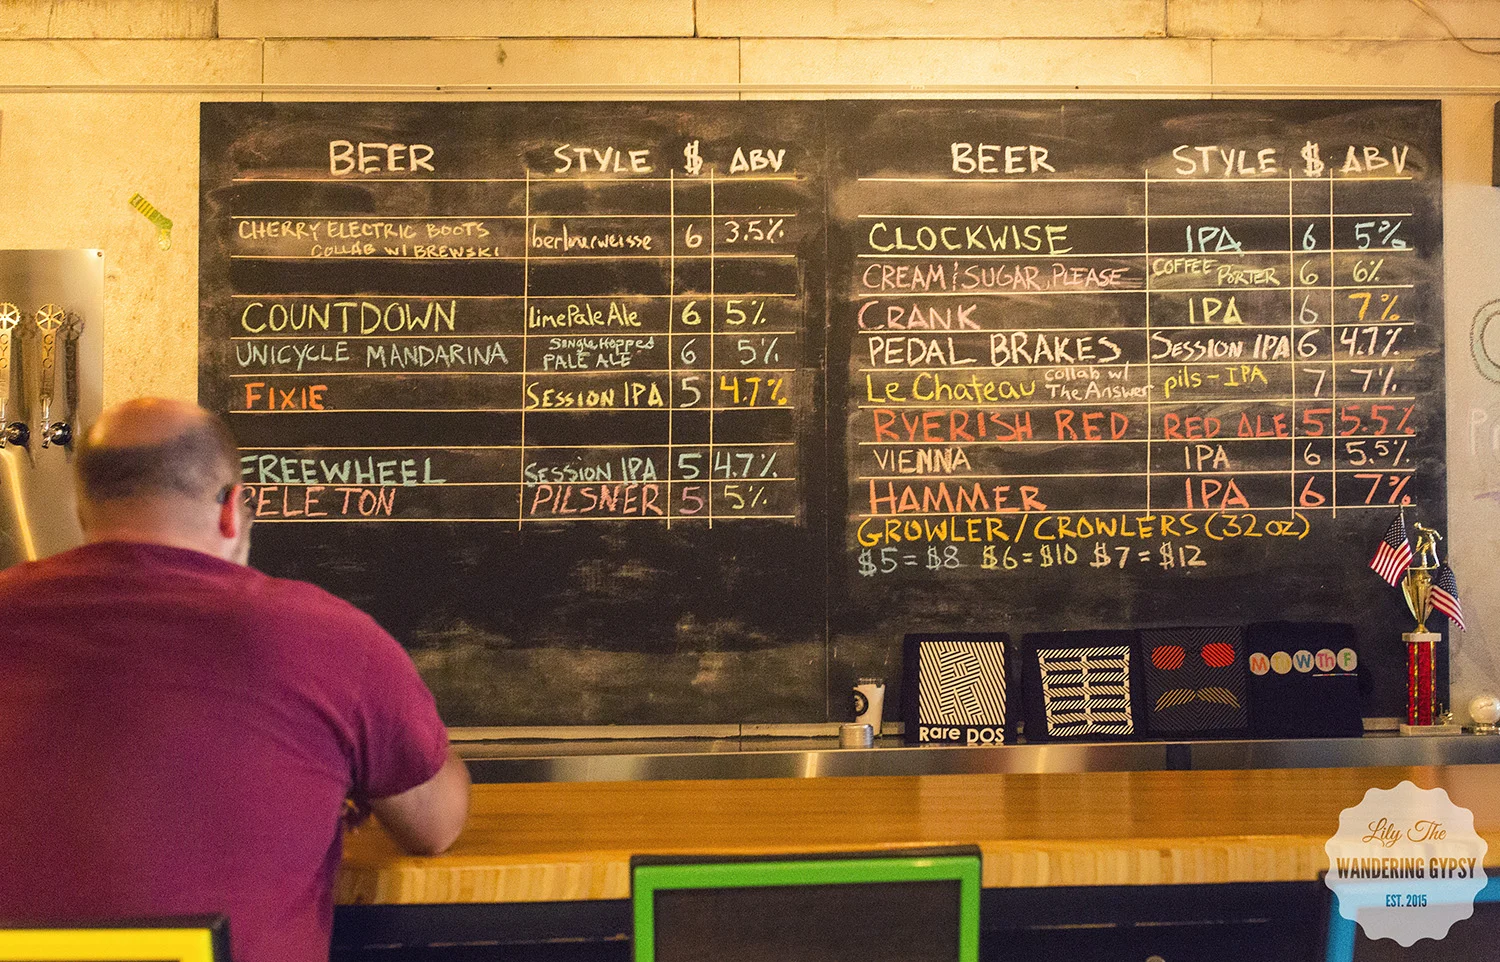 BEER STYLE $ ABV
CHERRY ELECTRIC BOOTS berlinerweisse 6 3.5%
COLLAB W/ BREWSKI
COUNTDOWN Lime Pale Ale 6 5%
UNICYCLE MANDARINA Single Hopped PALE ALE 6 5%
FIXIE SESSION IPA 5 4.7%
FREEWHEEL SESSION IPA 5 4.7%
PELETON PILSNER 5 5%
BEER STYLE $ ABV
CLOCKWISE IPA 6 5%
CREAM & SUGAR, PLEASE COFFEE PORTER 6 6%
CRANK IPA 6 7%
PEDAL BRAKES SESSION IPA 6 4.7%
Le Chateau collab w/ The Answer pils-IPA 7 7%
RYERISH RED RED ALE 5 5.5%
VIENNA IPA 6 5.5%
HAMMER IPA 6 7%
GROWLER/CROWLERS (32oz)
$5 = $8 $6 = $10 $7 = $12
Rare DOS
M T W Th F
Lily The
WANDERING GYPSY
EST. 2015